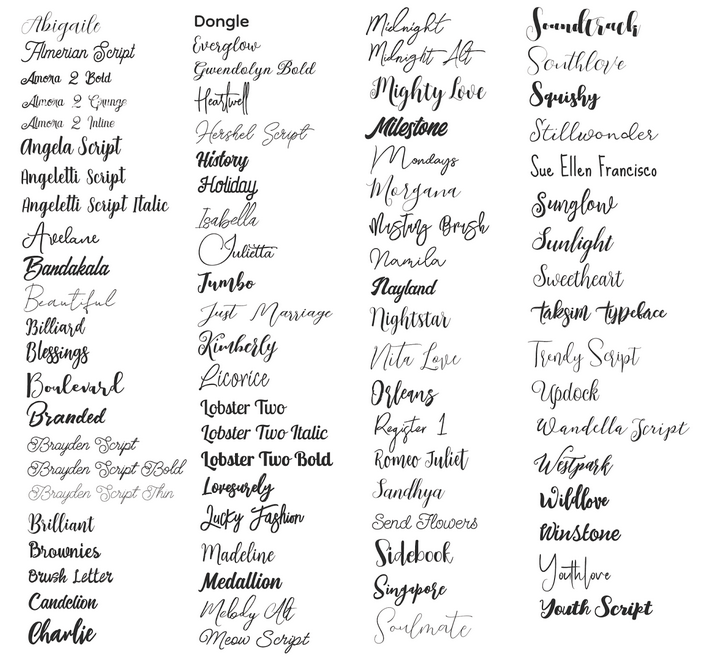 Abigaile
Almerian Script
Amora 2 Bold
Almora 2 Grunge
Almora 2 Inline
Angela Script
Angeletti Script
Angeletti Script Italic
Avelane
Bandakala
Beautiful
Billiard
Blessings
Boulevard
Branded
Brayden Script
Brayden Script Bold
Brayden Script Thin
Brilliant
Brownies
Brush Letter
Candelion
Charlie
Dongle
Everglow
Gwendolyn Bold
Heartwell
Hershel Script
History
Holiday
Isabella
Julietta
Jumbo
Just Marriage
Kimberly
Licorice
Lobster Two
Lobster Two Italic
Lobster Two Bold
Lovesurely
Lucky Fashion
Madeline
Medallion
Melody Alt
Meow Script
Midnight
Midnight Alt
Mighty Love
Milestone
Mondays
Morgana
Mustang Brush
Namila
Nayland
Nightstar
Nita Love
Orleans
Register 1
Romeo Juliet
Sandhya
Send Flowers
Sidebook
Singapore
Soulmate
Soundtrack
Southlove
Squishy
Stillwonder
Sue Ellen Francisco
Sunglow
Sunlight
Sweetheart
Taksim Typeface
Trendy Script
Updock
Wandella Script
Westpark
Wildlove
Winstone
Youthlove
Youth Script